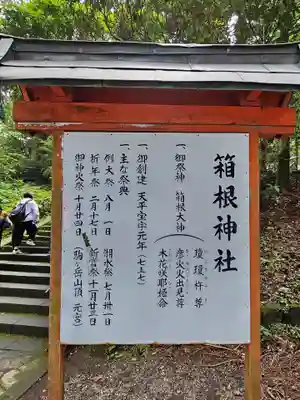 箱根神社
一、御祭神 箱根大神
瓊瓊杵尊
彦火火出見尊
木花咲耶姫命
一、御創建 天平宝字元年(七五七)
一、主な祭典
例大祭 八月一日 湖水祭 七月卅一日
祈年祭 二月十七日 新嘗祭 十一月廿三日
御神火祭 十月廿四日(駒ヶ岳山頂 元宮)